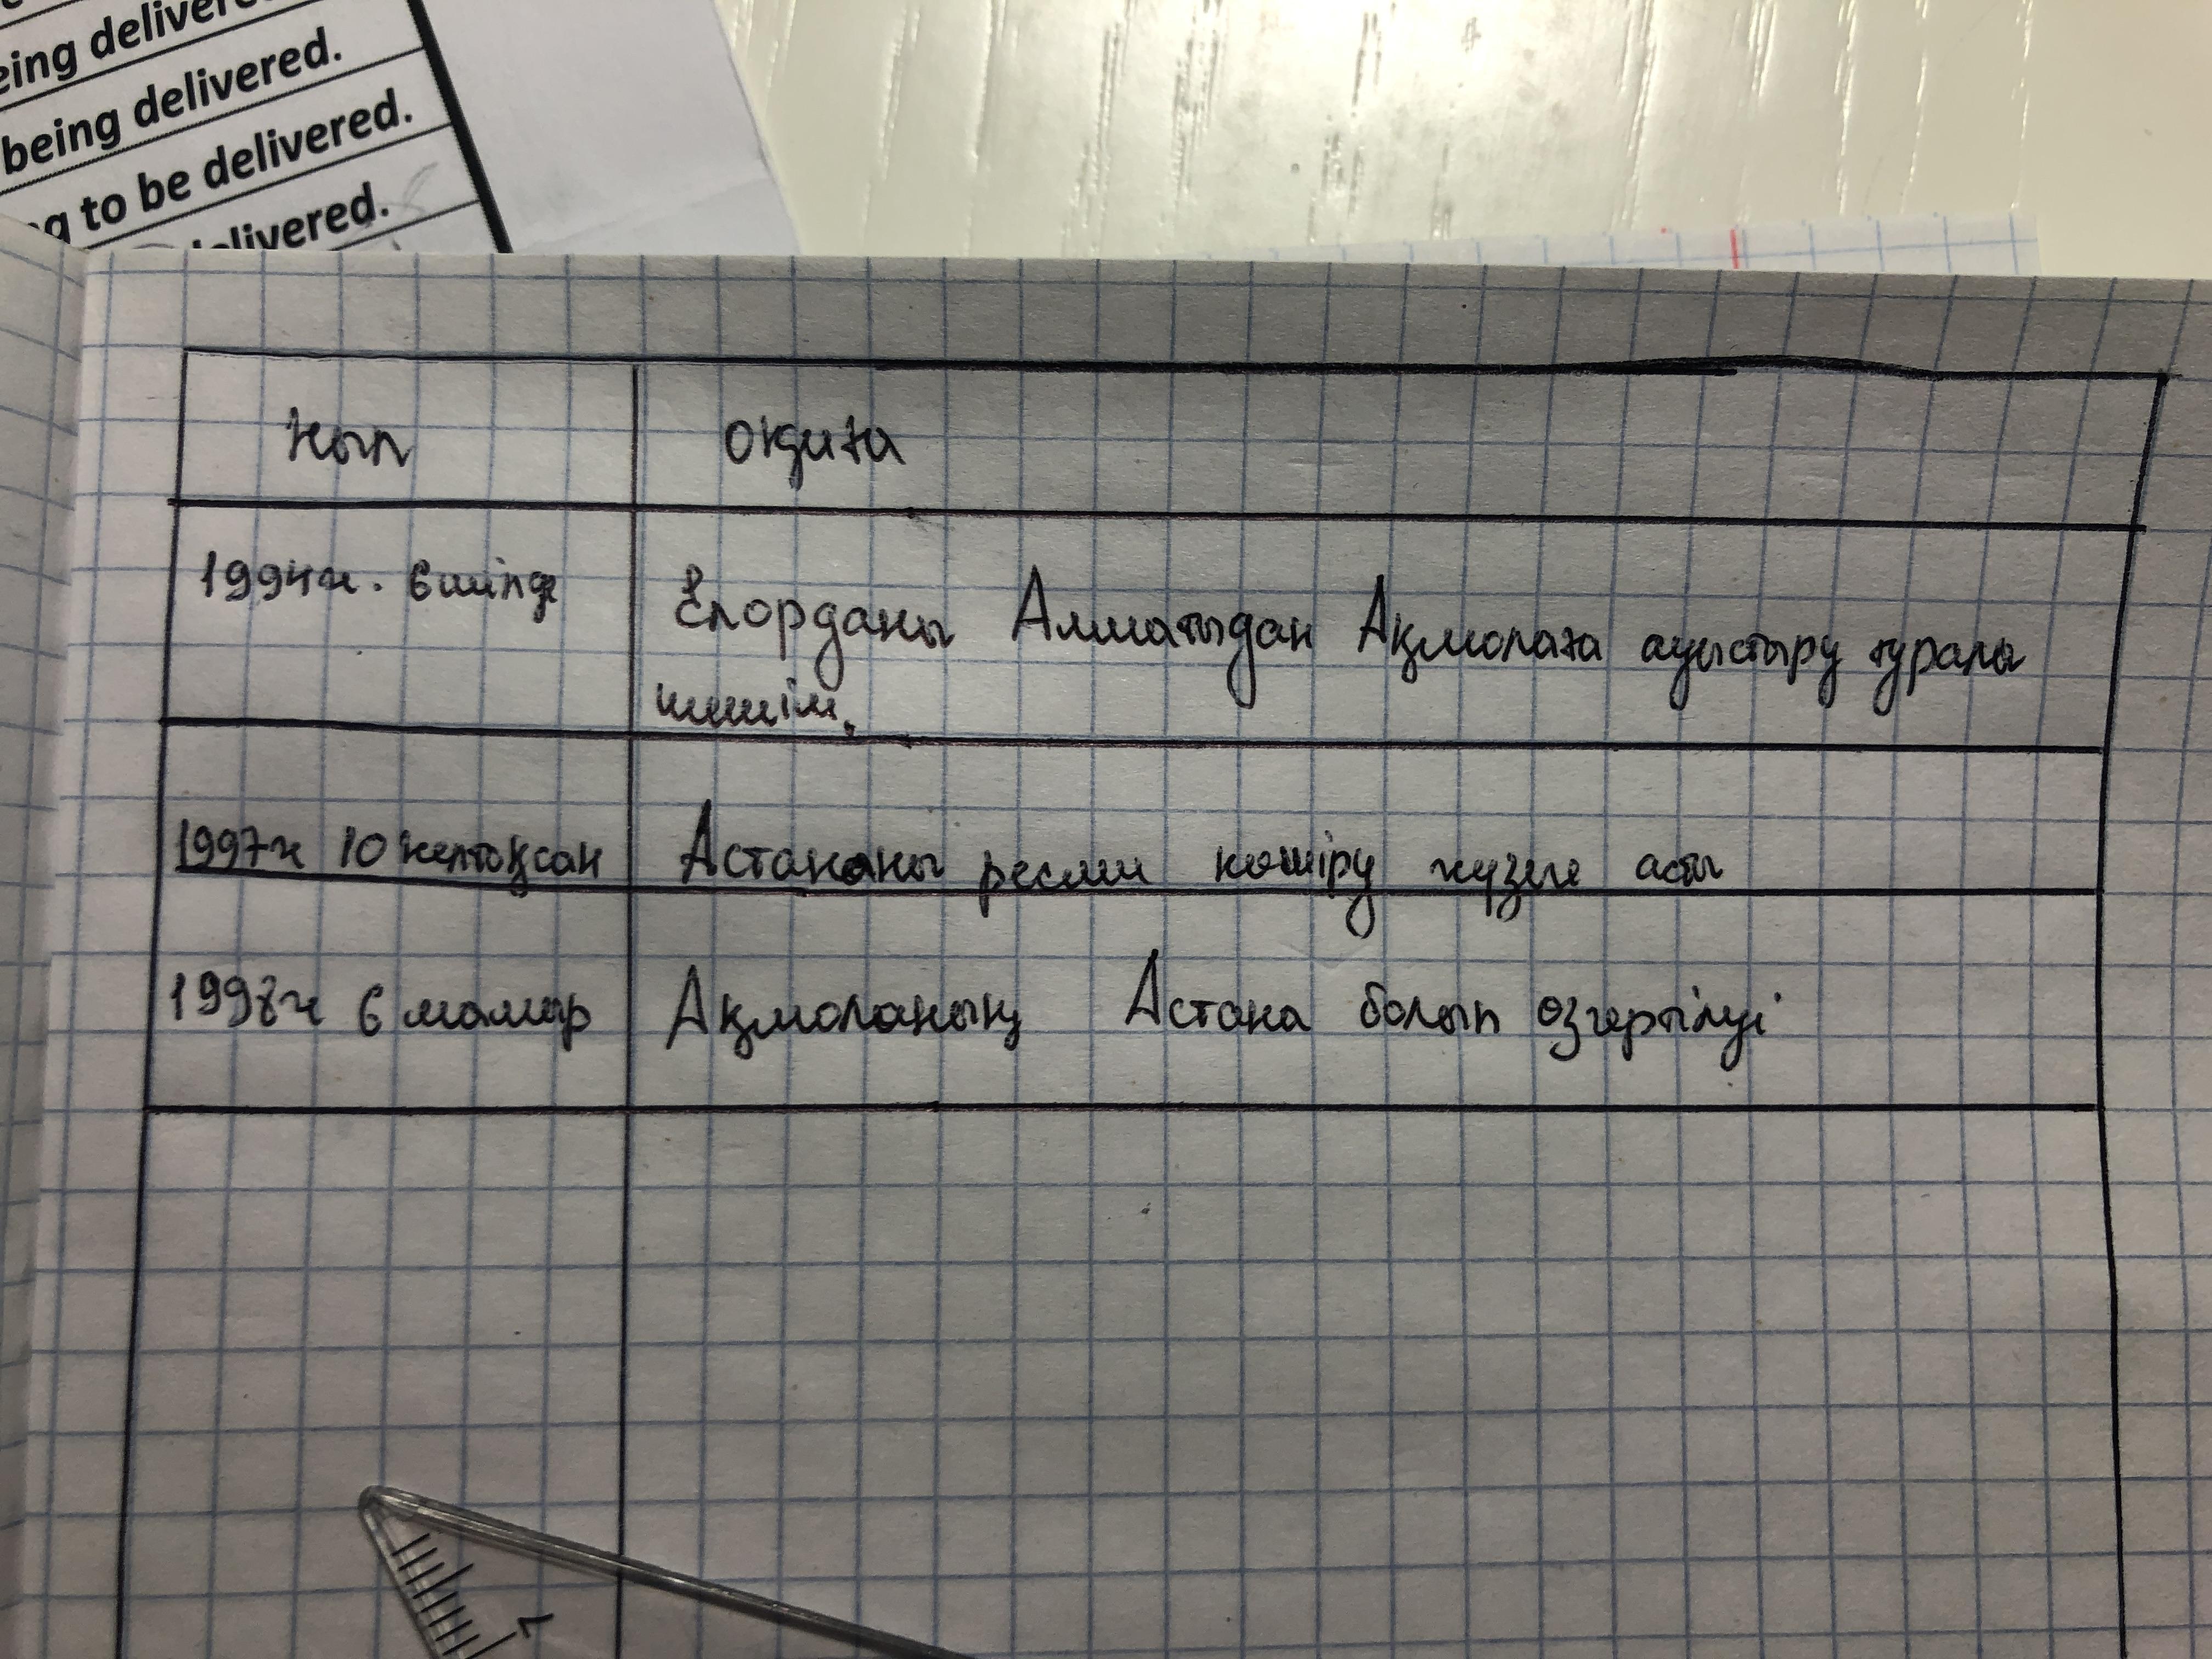 eing delivere
being delivered.
ng to be delivered.
delivered.
Жыл
Оқиға
1994ж. 6 шілде
Елорданы Алматыдан Ақмолаға ауыстыру туралы
шешім.
1997ж 10 желтоқсан
Астананы ресми көшіру жүзеге асты
1998ж 6 мамыр
Ақмоланың Астана болып өзгертілуі